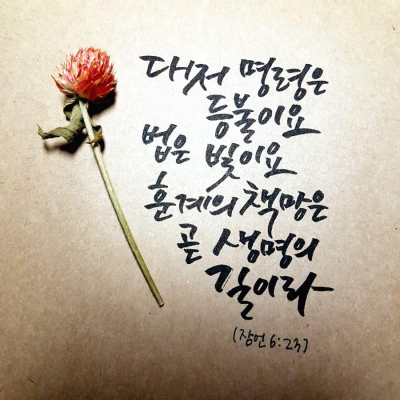 대저 명령은
등불이요
법은 빛이요
훈계의 책망은
곧 생명의
길이라
(잠언 6:23)